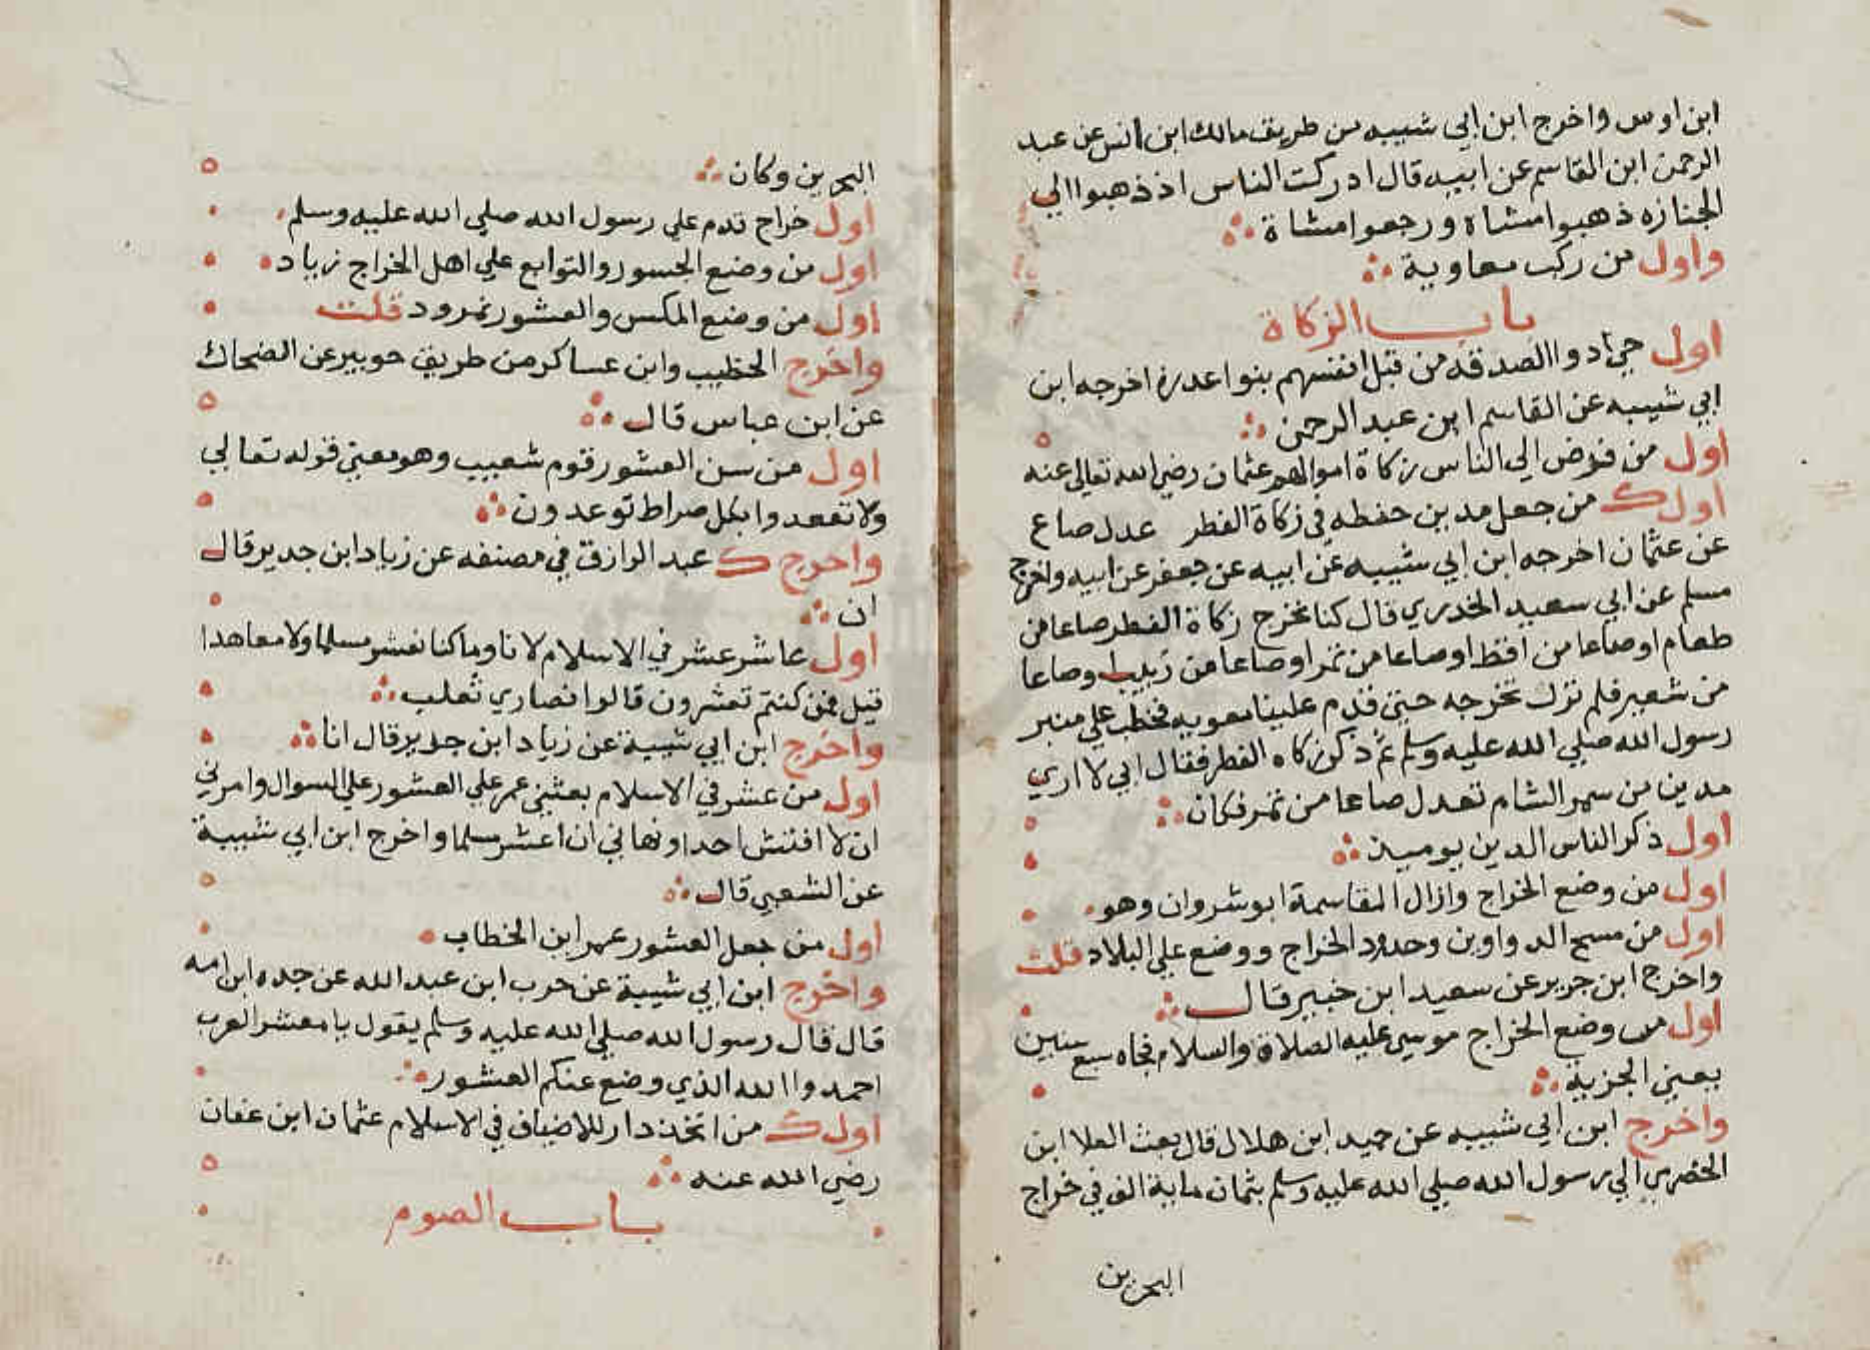 ابن اوس واخرج ابن ابي شيبه من طريق مالك ابن انس عن عبد
الرحمن ابن القاسم عن ابيه قال ادركت الناس اذ ذهبوا الي
الجنازه ذهبوا مشاه ورجعوا مشاة
واول من ركب معاوية
باب الزكاة
اول حي ادوا الصدقه من قبل انفسهم بنوا عدرة اخرجه ابن
ابي شيبه عن القاسم ابن عبد الرحمن
اول من فوض الي الناس زكاة اموالهم عثمان رضي الله تعالى عنه
اول ك من جعل مدين حفطه في زكاة الفطر عدل صاع
عن عثمان اخرجه ابن ابي شيبه عن ابيه عن جعفر عن ابيه واخرج
مسلم عن ابي سعيد الخدري قال كنا نخرج زكاة الفطر صاعا من
طعام او صاعا من اقط او صاعا من تمر او صاعا من زبيب وصاعا
من شعير فلم نزل نخرجه حتي قدم علينا معويه فخطب علي منبر
رسول الله صلي الله عليه وسلم ثم ذكر زكاه الفطر فقال اني لا اري
مدين من سمر الشام تعدل صاعا من تمر فكان
اول ذكر الناس الدين يوميذ
اول من وضع الخراج وازال المقاسمة ابوشروان وهو
اول من مسح الدواوين وحدود الخراج ووضع علي البلاد قلت
واخرج ابن جرير عن سعيد ابن خبير قال
اول من وضع الخراج موسي عليه الصلاة والسلام فجاه سبع سنين
يعني الجزية
واخرج ابن ابي شيبه عن حميد ابن هلال قال بعث العلا ابن
الخضري الي رسول الله صلي الله عليه وسلم بثمان ماية الف في خراج
البحرين
البحرين وكان
اول خراج قدم علي رسول الله صلي الله عليه وسلم
اول من وضع الجسور والتوابع علي اهل الخراج زياد
اول من وضع المكس والعشور نمرود قلت
واخرج الخطيب وابن عساكر من طريق حويبر عن الضحاك
عن ابن عباس قال
اول من سن العشور قوم شعيب وهو معني قوله تعالي
ولا تقعدوا بكل صراط توعدون
واخرج ك عبد الرازق في مصنفه عن زياد ابن جدير قال
ان
اول عاشر عشر في الاسلام لانا وما كنا نعشر مسلما ولا معاهدا
قيل فمن كنتم تعشرون قالوا نصاري ثعلب
واخرج ابن ابي شيبة عن زياد ابن جدير قال انا
اول من عشر في الاسلام بعثني عمر علي العشور علي السوال وامرني
ان لا افتش احدا ونهاني ان اعشر مسلما واخرج ابن ابي شيبة
عن الشعبي قال
اول من جعل العشور عمر ابن الخطاب
واخرج ابن ابي شيبة عن حرب ابن عبد الله عن جده ابن امه
قال قال رسول الله صلي الله عليه وسلم يقول يا معشر العرب
احمدوا الله الذي وضع عنكم العشور
اول ك من اتخذ دار للاضياف في الاسلام عثمان ابن عفان
رضي الله عنه
باب الصوم